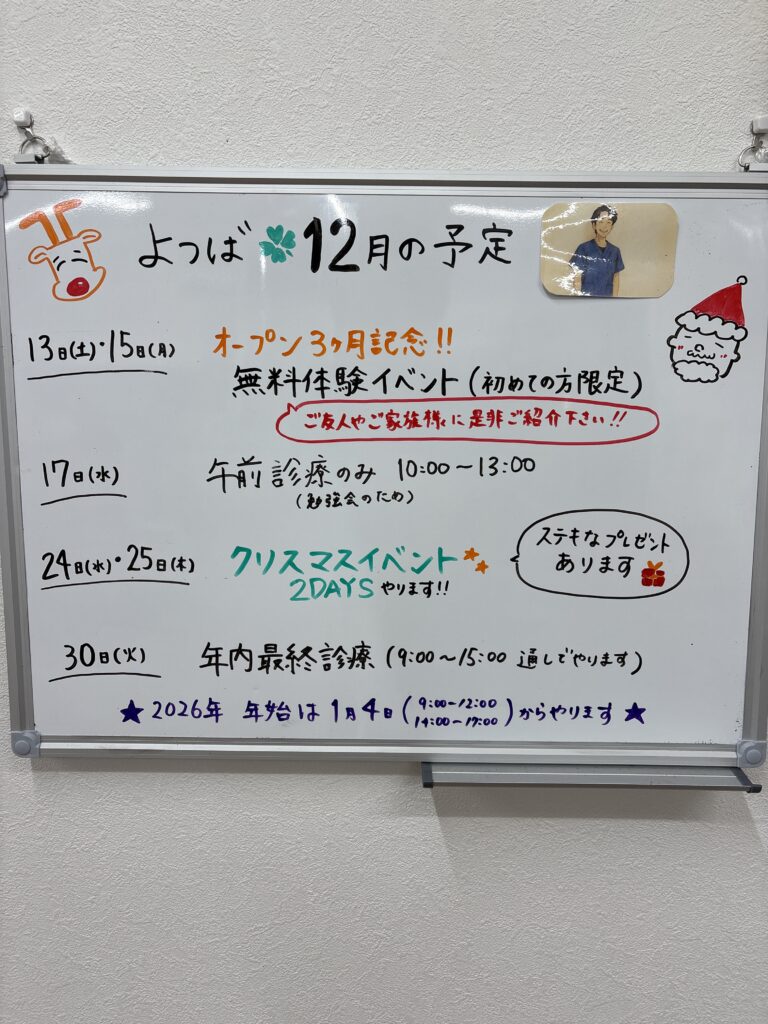 よつば 12月の予定
13日(土)・15日(月) オープン3ヶ月記念!!
無料体験イベント(初めての方限定)
ご友人やご家族様に是非ご紹介下さい!!
17日(水) 午前診療のみ 10:00〜13:00
(勉強会のため)
24日(水)・25日(木) クリスマスイベント
2DAYS やります!!
ステキなプレゼント
あります
30日(火) 年内最終診療(9:00〜15:00 通しでやります)
★2026年 年始は1月4日(9:00-12:00
14:00-17:00)からやります★